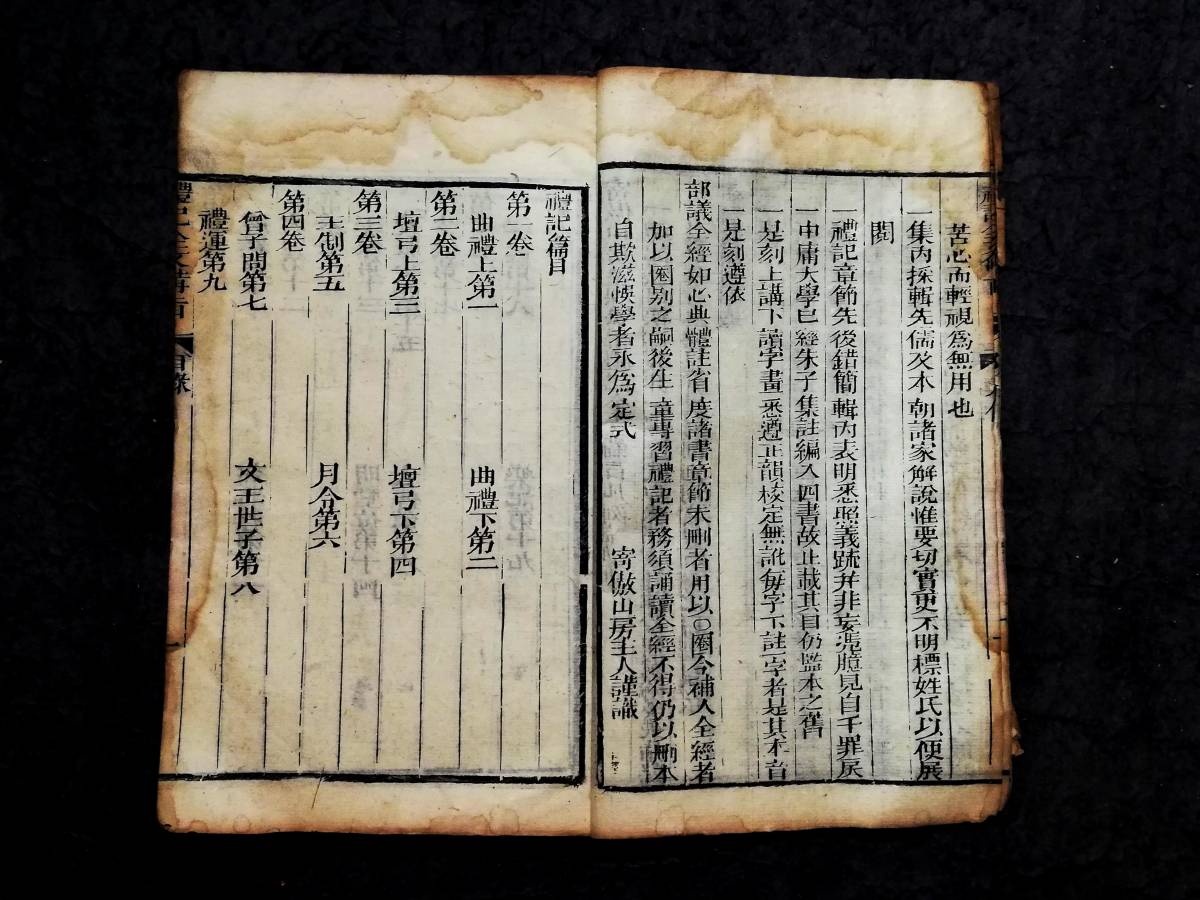 苦心而輕視爲無用也
一集內採輯先儒及本朝諸家解說惟要切實更不明標姓氏以便展
閱
一禮記章節先後錯簡輯內表明悉照義疏并非妄憑臆見自干罪戾
一中庸大學已經朱子集註編入四書故止載其目仍監本之舊
一是刻上講下讀字畫悉遵正韻核定無訛每字下註一字者是其本音
一是刻遵依
部議全經如心典體註省度諸書章節未刪者用以〇圈今補入全經者
加以圈別之嗣後生童專習禮記者務須誦讀全經不得仍以刪本
自欺滋悞學者永爲定式
寄傲山房主人謹識
禮記篇目
第一卷
曲禮上第一
曲禮下第二
第二卷
壇弓上第三
壇弓下第四
第三卷
王制第五
月令第六
第四卷
曾子問第七
文王世子第八
禮運第九
禮記全文
目錄